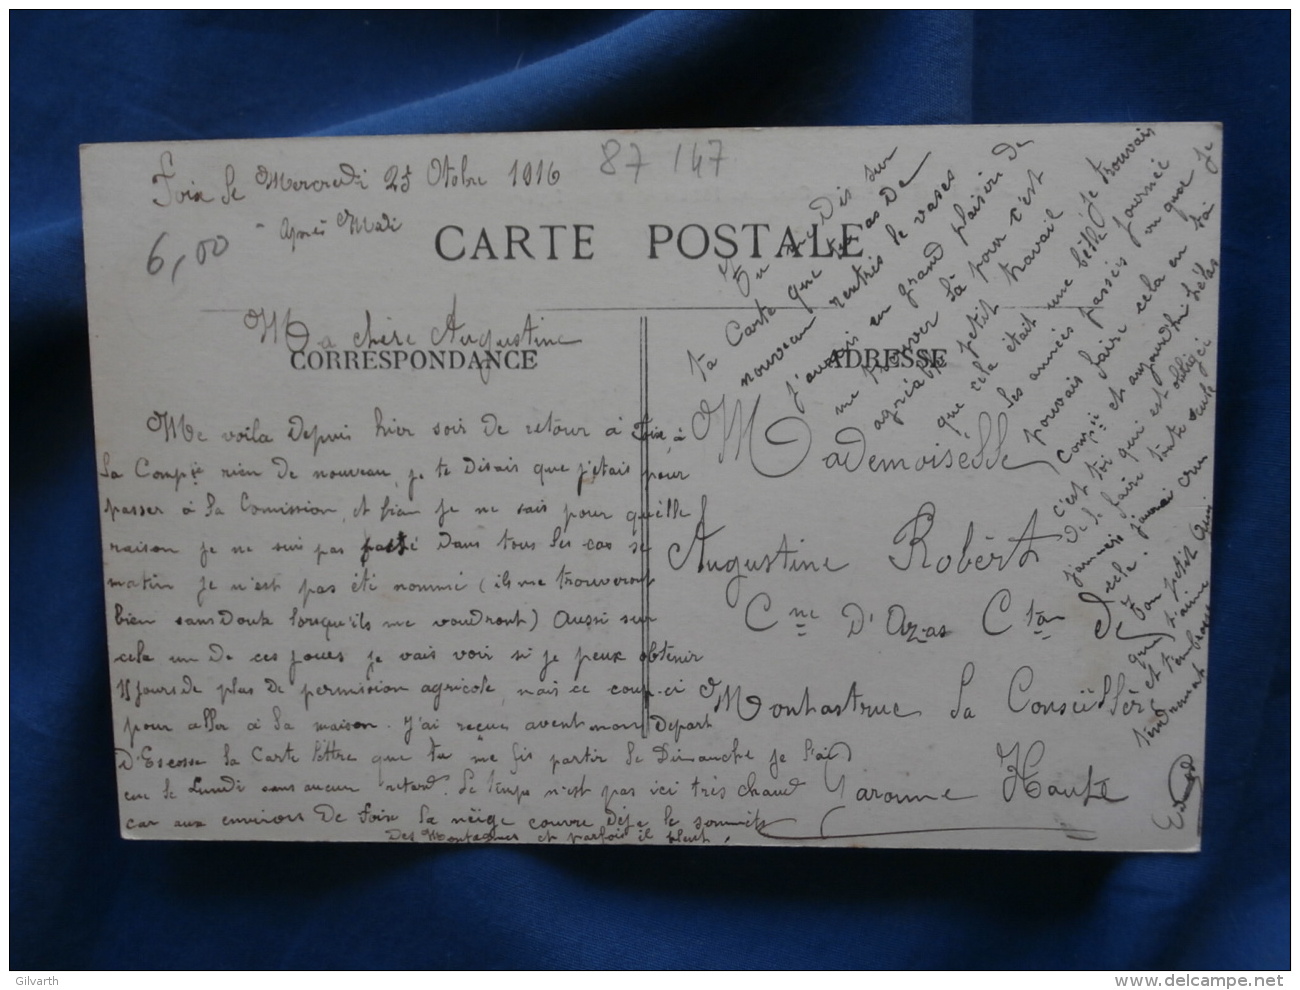 Foix le Mercredi 25 Otobre 1916
87 147
Après Midi
6,00
CARTE POSTALE
Ma chère Augustine
CORRESPONDANCE
ADRESSE
Me voila depuis hier soir de retour à Foix, à
la Compie rien de nouveau, je te disais que j'étais pour
passer à la Comission, et bien je ne sais pour quelle
raison je ne suis pas passé dans tous les cas se
matin je n'est pas été nommé (ils me trouveront
bien sans doute lorsqu'ils me voudront) Aussi sur
cela un de ces jours je vais voir si je peux obtenir
15 jours de plus de permission agricole, mais ce coup-ci
pour aller à la maison. J'ai reçue avent mon depart
D'Escosse la Carte lettre que tu me fis partir le Dimanche je l'ai
eue le Lundi sans aucun retard. Le temps n'est pas ici très chaud
car aux environs de Foix la neige couvre deja le sommets
des Montagnes et parfois il pleut,
Mademoiselle
Augustine Robért
Cne D'Azas Cton de
Montastruc la Conseillère
Garonne Haute
Tu me dis sur
ta Carte que tu as de
nouveau rentrés le vases
j'aurais eu grand plaisir de
me trouver là pour c'est
agréable petit travail
que cela était une bétte je trouvais
les années passées journée
pouvais faire cela en ta
Compie et aujourd'hui hélas
c'est toi qui est obligé
de le faire toute seule
jammers cela jaurai cru
Ton petit Ami
qui t'aime
et t'embrasse
tendremat